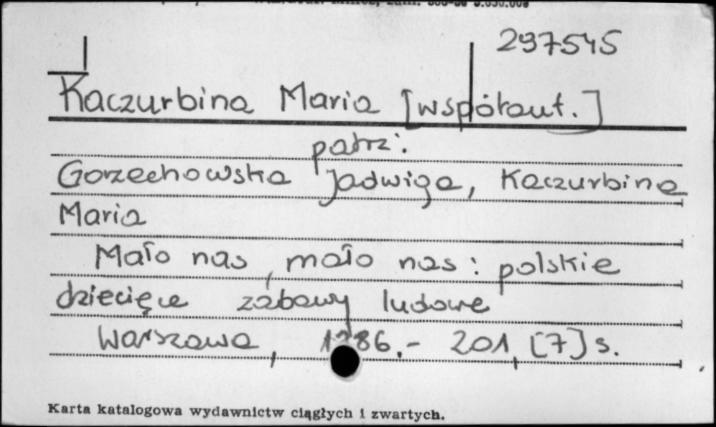 297545
Kaczurbina Maria [współaut.]
patrz:
Gorzechowska Jadwiga, Kaczurbina
Maria
Mało nas, mało nas: polskie
dziecięce zabawy ludowe
Warszawa 1986.- 201, [7] s.
Karta katalogowa wydawnictw ciągłych i zwartych.